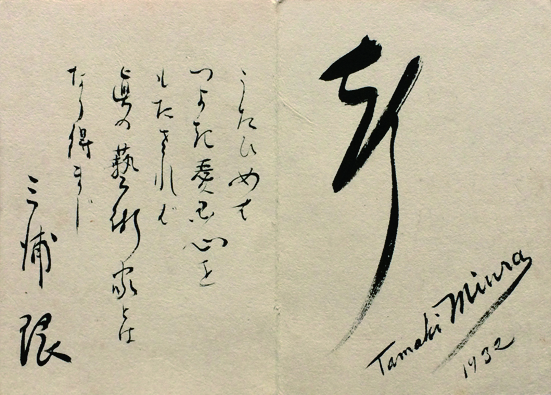 Tamaki Miura
1932
うたひめも
つよき愛国心を
もたされば
眞の藝術家とは
なり得まじ
三浦 環